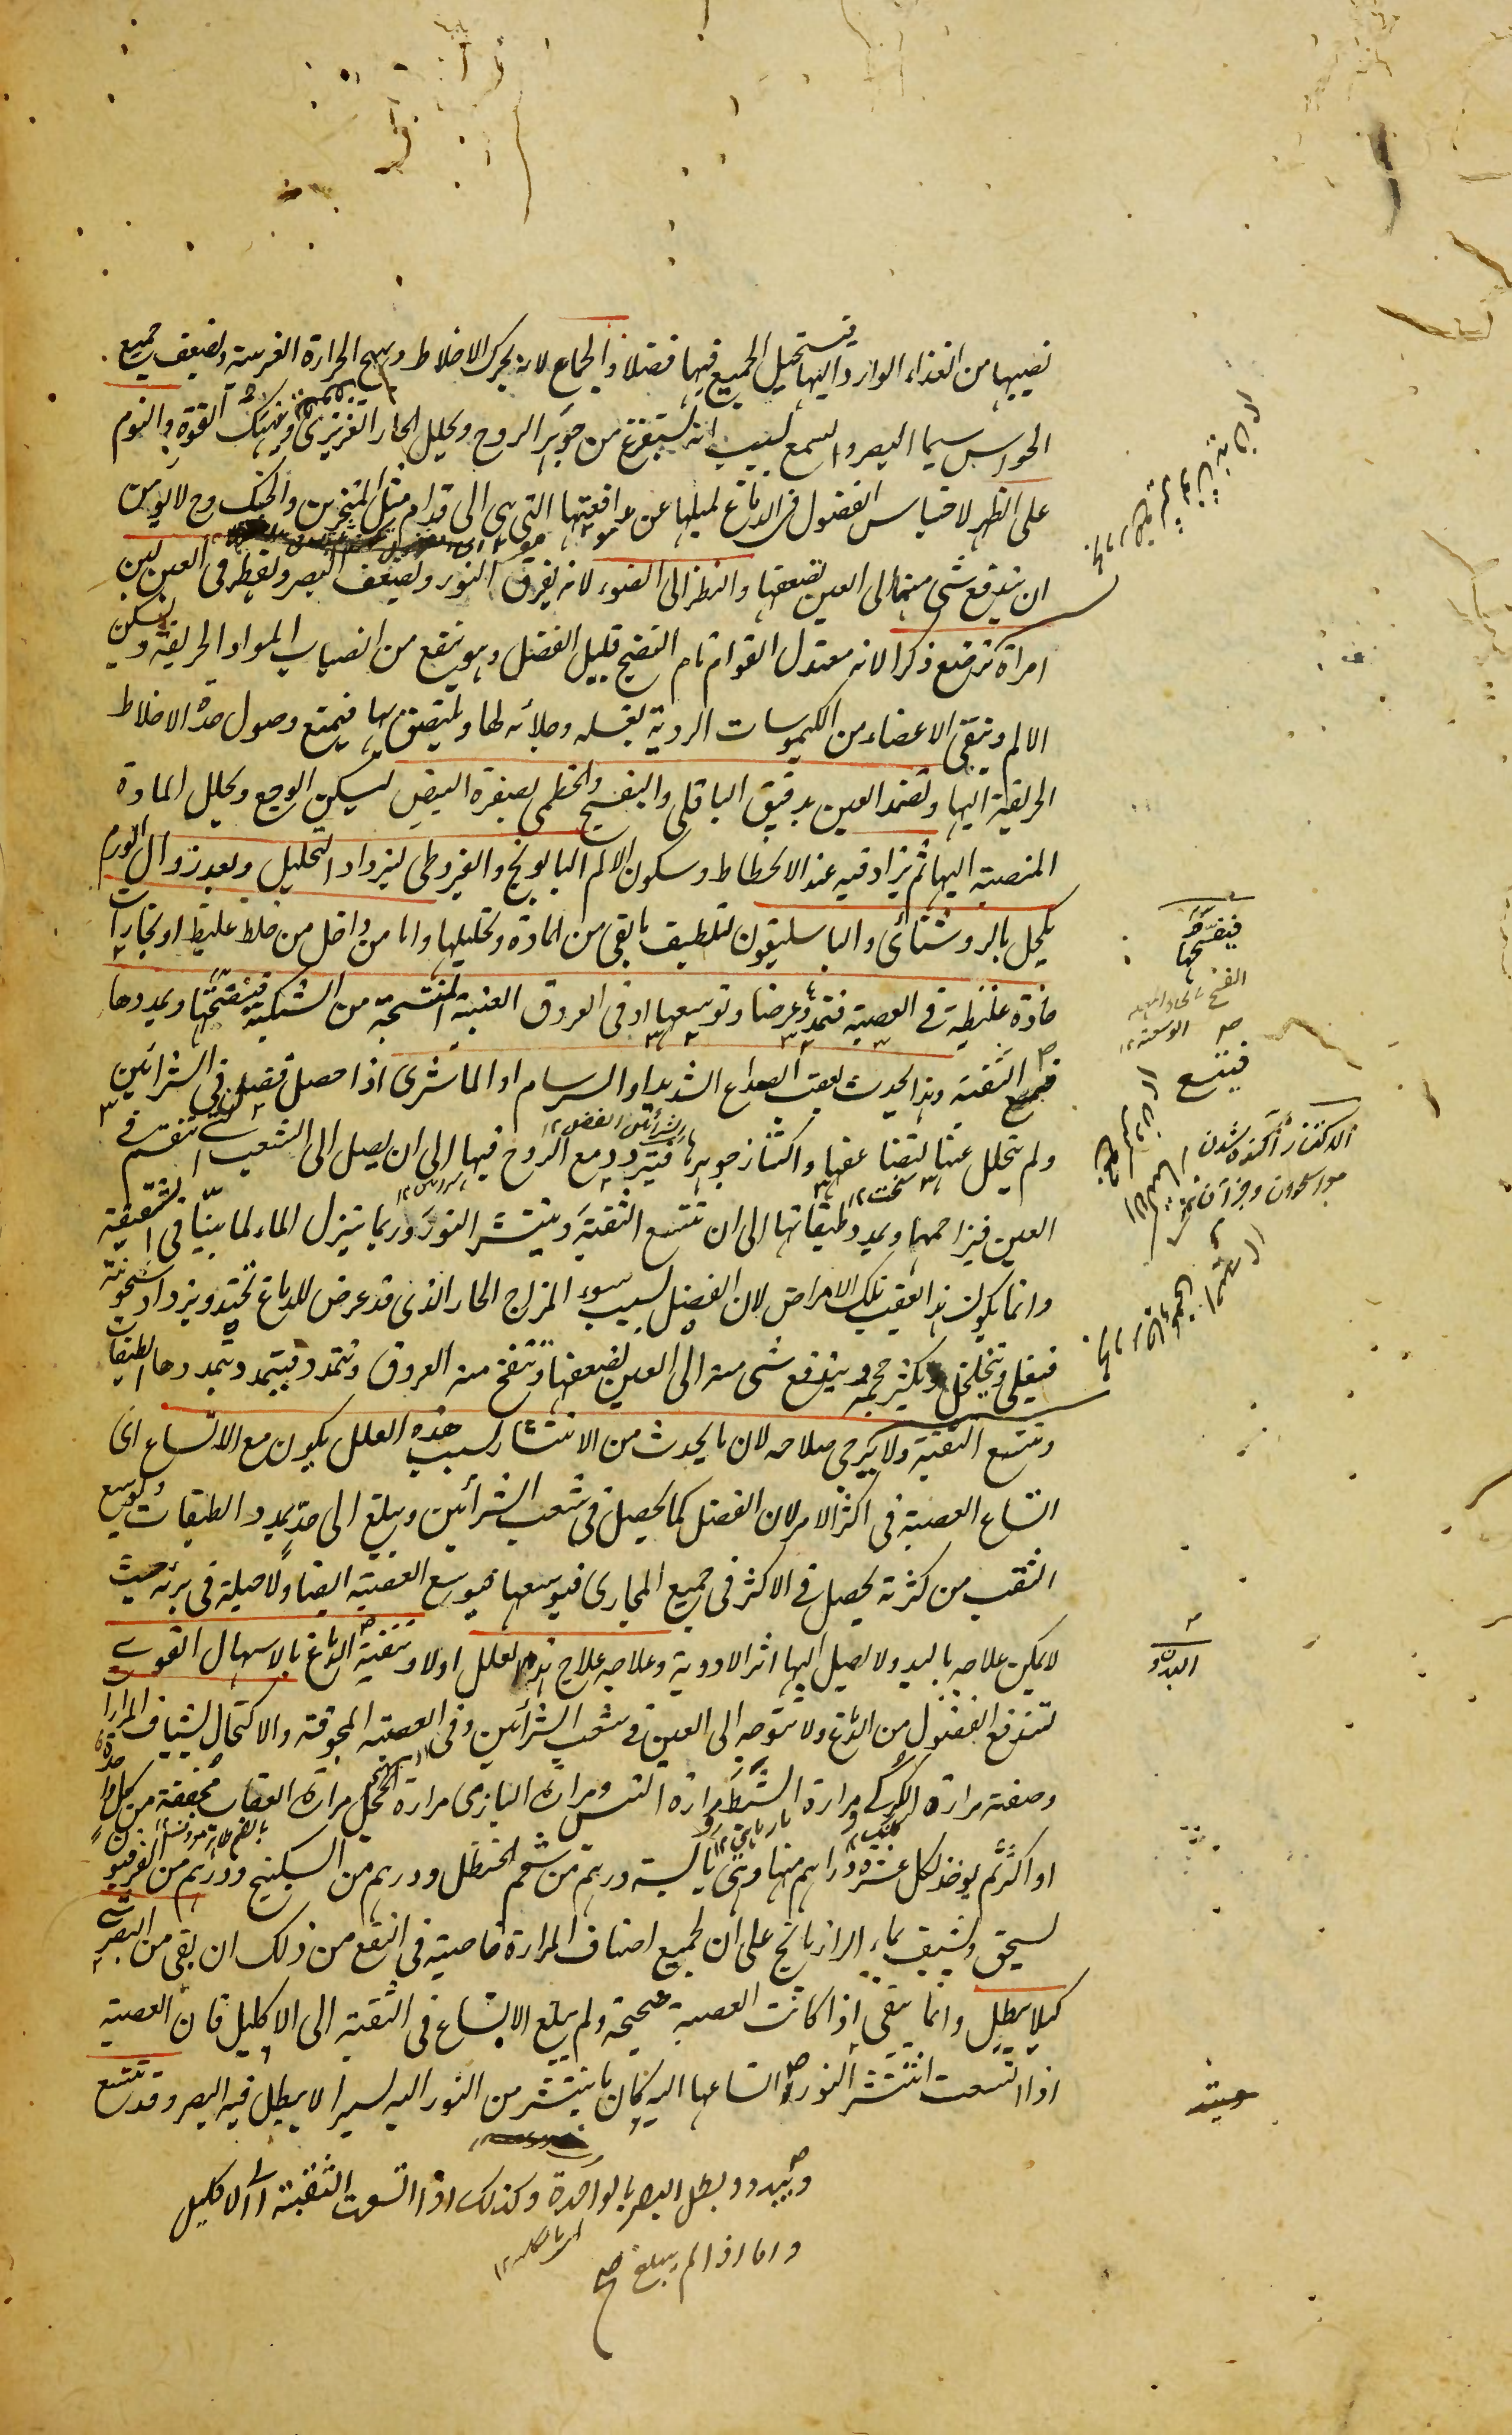 نصيبها من الغذاء الوارد اليها فيستحيل الجميع فيها فضلا والجماع لانه يحرك الاخلاط ويهيج الحرارة الغريبة ويضعف جميع
الحواس سيما البصر والسمع بسبب انه يستفرغ من جوهر الروح ويحلل الحار الغريزى وينهك القوة والنوم
على الظهر لاحتباس الفضول فى الدماغ لميلها عن مدافعها التى هى الى قدام مثل المنخرين والحنك وح لا يومن
ان يندفع شى منها الى العين لضعفها والنظر الى الضوء لانه يفرق النور ويضعف البصر ويقطر فى العين لبن
امرأة ترضع ذكرا لانه معتدل القوام تام النضج قليل الفضل وهو ينفع من انصباب المواد الحريفة ويسكن
الالم وينقى الاعضاء من الكيموسات الردية بغسله وجلائه لها ويلتصق بها فيمنع وصول حدة الاخلاط
الحريفة اليها وتضمد العين بدقيق الباقلى والبنفسج والخطمى بصفرة البيض ليسكن الوجع ويحلل المادة
المنصبة اليها ثم يزاد فيه عند الانحطاط وسكون الالم البابونج والقيروطى ليزداد التحليل وبعد زوال الورم
يكحل بالروشنائى والباسليقون لتلطيف ما بقى من المادة وتحليلها واما من داخل من خلط غليظ او بخارات
حادة غليظة فى العصبة فتمددها عرضا وتوسعها او فى العروق العنبية المنتسجة من الشبكية فيفتحها ويمددها
فتتسع الثقبة وهذا يحدث بعقب الصداع الشديد او السرسام او الماشرى اذا حصل فضل فى الشرائين
ولم يتحلل عنها لتضاعفها واكتناز جوهرها فيتردد مع الروح فيها الى ان يصل الى الشعب التى تنقسم فى
العين فيزاحمها ويمدد طبقاتها الى ان تتسع الثقبة وينتشر النور وربما ينزل الماء لما بينا فى الشقيقة
وانما يكون هذا عقيب تلك الامراض لان الفضل بسبب سوء المزاج الحار الذى قد عرض للدماغ يحتد ويزداد سخونة
فيغلى ويتخلخل ويكثر حجمه ويندفع شى منه الى العين لضعفها وتنتفخ منه العروق وتتمدد فيتمدد بتمددها الطبقات
وتتسع الثقبة ولا يرجى صلاحه لان ما يحدث من الانتشار بسبب هذه العلل يكون مع الاتساع اى
اتساع العصبة فى اكثر الامر لان الفضل كما يحصل فى شعب الشرائين ويبلغ الى حد يمدد الطبقات ويوسع
الثقب من كثرته يحصل فى الاكثر فى جميع المجارى فيوسعها فيوسع العصبة ايضا ولا حيلة فى برئه حيث
لا يمكن علاجه باليد ولا يصل اليها اثر الادوية وعلاجه علاج هذه العلل اولا وتنقية الدماغ بالاسهال القوى
لتندفع الفضول من الدماغ ولا تتوجه الى العين فى شعب الشرائين وفى العصبة المجوفة والاكتحال بشياف المرارا
وصفته مرارة الكركى ومرارة الشبوط ومرارة التيس ومرارة البازى مرارة الحجل مرارة العقاب مجففة من كل واحدة
او اكثر ثم يوخذ لكل عشرة دراهم منها وهى يابسة درهم من شحم الحنظل ودرهم من السكبينج ودرهم من الفرفيون
يسحق ويشيف بماء الرازيانج على ان لجميع اصناف المرارة خاصية فى النفع من ذلك ان بقى من البصر شى
كيلا يبطل وانما ينفع اذا كانت العصبة صحيحة ولم يبلغ الاتساع فى الثقبة الى الاكليل فان العصبة
اذا اتسعت انتشر النور اتساعها اليه كان ما ينتشر من النور اليه يسيرا لا يبطل فيه البصر وقد تتسع
ويبدد ويبطل البصر بالواحدة وكذلك اذا اتسعت الثقبة الى الاكليل
واما اذا لم يبلغ صح
فيفسحها
الفسح بالحاء المهملة
الوسعة ١٢
فيتسع
الاكتناز آگنده شدن
البدن و